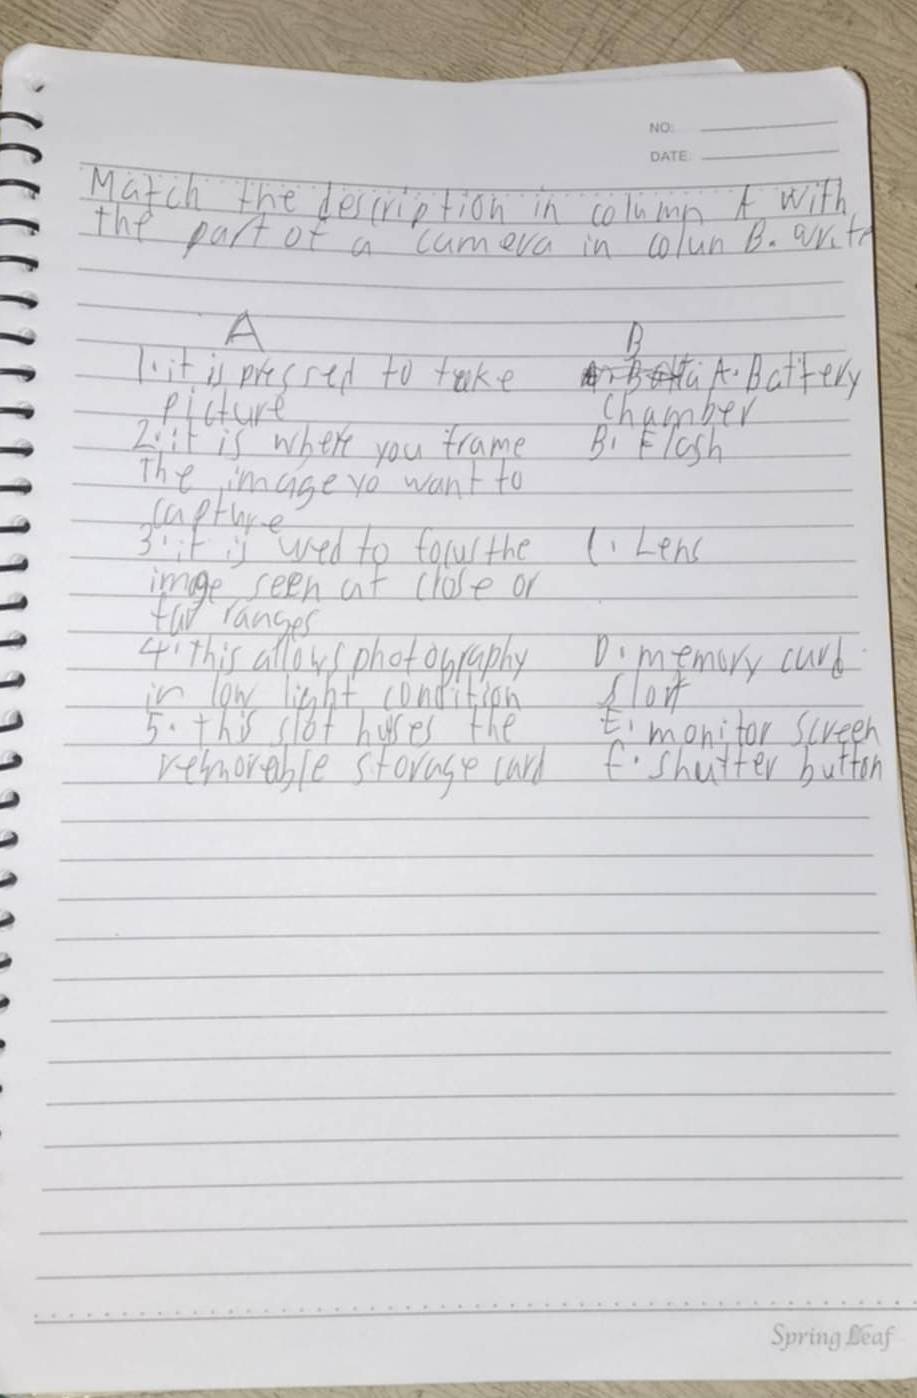 NO:
DATE:
Match the description in column A with
the part of a camera in colun B. write
A B
1. it is pressed to take A. Battery
picture chamber
2. it is where you frame B. Flash
the image yo want to
capture
3. it is used to focus the C. Lens
image seen at close or
far ranges
4. This allows photography D. memory card
in low light condition slott
5. this slot huses the E. monitor screen
remoreable storage card F. shutter button
Spring Leaf